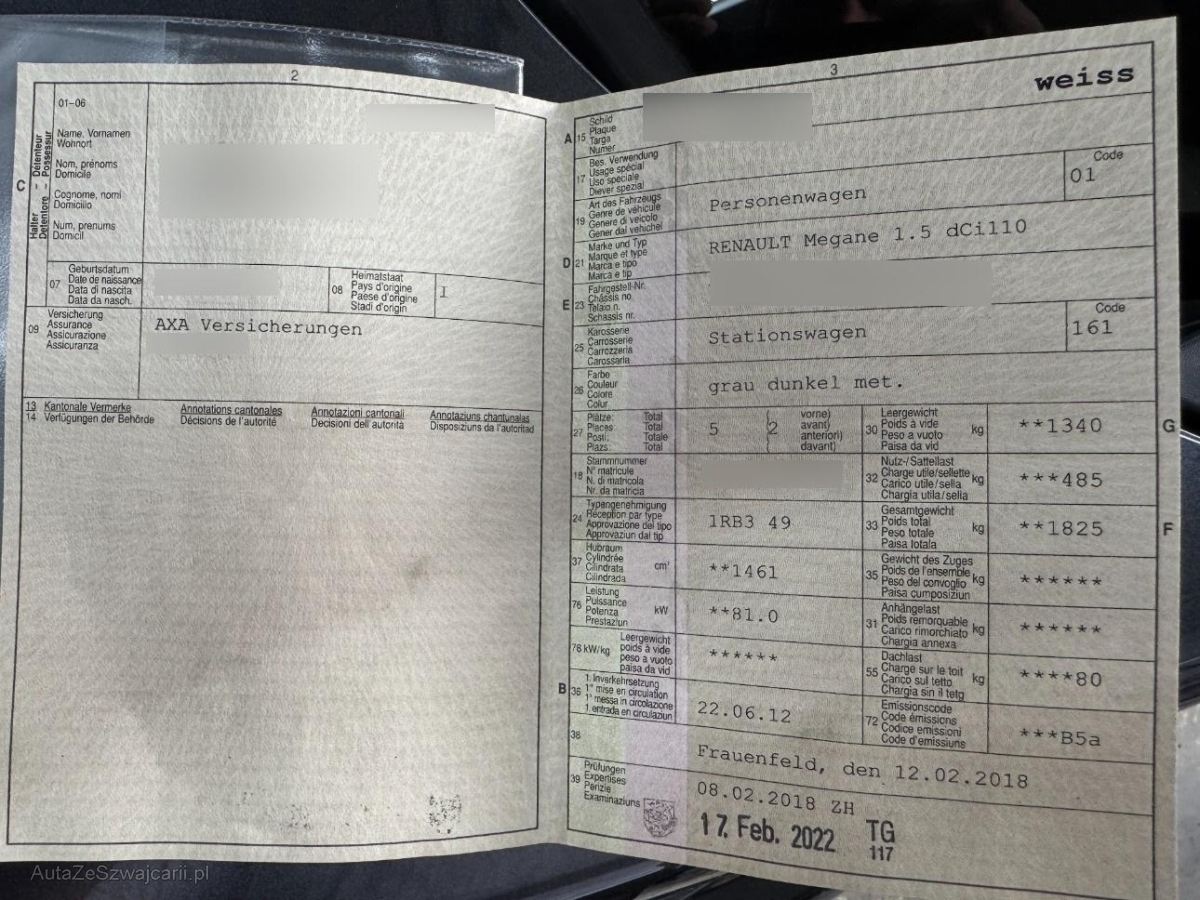 2
01-06
C
Halter - Détenteur
Detentore - Possessur
Name, Vornamen
Wohnort
Nom, prénoms
Domicile
Cognome, nomi
Domicilio
Num, prenums
Domicil
07
Geburtsdatum
Date de naissance
Data di nascita
Data da nasch.
08
Heimatstaat
Pays d'origine
Paese d'origine
Stadi d'origin
I
09
Versicherung
Assurance
Assicurazione
Assicuranza
AXA Versicherungen
13 Kantonale Vermerke Annotations cantonales Annotazioni cantonali Annotaziuns chantunalas
14 Verfügungen der Behörde Décisions de l'autorité Decisioni dell'autorità Disposiziuns da l'autoritad
3
weiss
A 15
Schild
Plaque
Targa
Numer
17
Bes. Verwendung
Usage spécial
Uso speciale
Diever spezial
19
Art des Fahrzeugs
Genre de véhicule
Genere di veicolo
Gener dal vehichel
Personenwagen
Code
01
D 21
Marke und Typ
Marque et type
Marca e tipo
Marca e tip
RENAULT Megane 1.5 dCi110
E 23
Fahrgestell-Nr.
Châssis no
Telaio n.
Schassis nr.
25
Karosserie
Carrosserie
Carrozzeria
Carossaria
Stationswagen
Code
161
26
Farbe
Couleur
Colore
Colur
grau dunkel met.
27
Plätze: Total
Places: Total
Posti: Totale
Plazs: Total
5 2
vorne)
avant)
anteriori)
davant)
30
Leergewicht
Poids à vide
Peso a vuoto
Paisa da vid
kg
**1340
G
18
Stammnummer
N° matricule
N. di matricola
Nr. da matricla
32
Nutz-/Sattellast
Charge utile/sellette
Carico utile/sella
Chargia utila/sella
kg
***485
24
Typengenehmigung
Réception par type
Approvazione del tipo
Approvaziun dal tip
1RB3 49
33
Gesamtgewicht
Poids total
Peso totale
Paisa totala
kg
**1825
F
37
Hubraum
Cylindrée
Cilindrata
Cilindrada
cm³
**1461
35
Gewicht des Zuges
Poids de l'ensemble
Peso del convoglio
Paisa cumposiziun
kg
******
76
Leistung
Puissance
Potenza
Prestaziun
kW
**81.0
31
Anhängelast
Poids remorquable
Carico rimorchiato
Chargia annexa
kg
******
78 kW/kg
Leergewicht
poids à vide
peso a vuoto
paisa da vid
******
55
Dachlast
Charge sur le toit
Carico sul tetto
Chargia sin il tetg
kg
****80
B 36
1. Inverkehrsetzung
1re mise en circulation
1a messa in circolazione
1. entrada en circulaziun
22.06.12
72
Emissionscode
Code émissions
Codice emissioni
Code d'emissiuns
***B5a
38
Frauenfeld, den 12.02.2018
39
Prüfungen
Expertises
Perizie
Examinaziuns
08.02.2018 ZH
17. Feb. 2022 TG
117
AutaZeSzwajcarii.pl